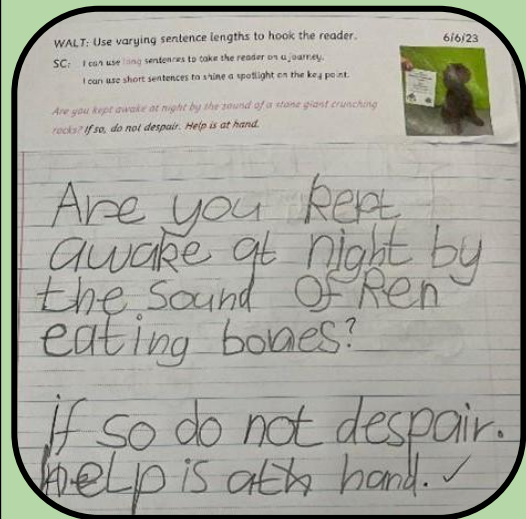 WALT: Use varying sentence lengths to hook the reader.
6/6/23
SC: I can use long sentences to take the reader on a journey.
I can use short sentences to shine a spotlight on the key point.
Are you kept awake at night by the sound of a stone giant crunching
rocks? If so, do not despair. Help is at hand.
Are you kept
awake at night by
the sound of Ren
eating bones?
if so do not despair.
help is at hand. ✓